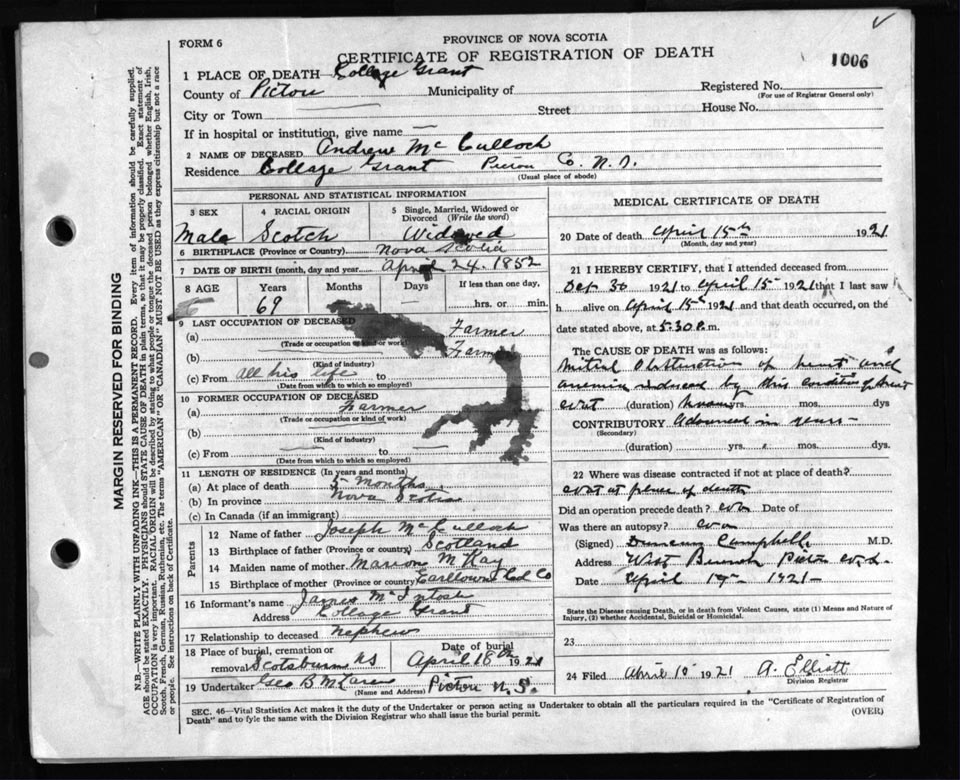 PROVINCE OF NOVA SCOTIA
FORM 6
CERTIFICATE OF REGISTRATION OF DEATH
1006
1 PLACE OF DEATH College Grant
County of Pictou Municipality of Registered No.
(For use of Registrar General only)
City or Town Street House No.
If in hospital or institution, give name —
2 NAME OF DECEASED Andrew Mc Culloch
Residence College Grant Pictou Co. N. S.
(Usual place of abode)
MARGIN RESERVED FOR BINDING
N.B.—WRITE PLAINLY WITH UNFADING INK—THIS IS A PERMANENT RECORD. Every item of information should be carefully supplied.
AGE should be stated EXACTLY. PHYSICIANS should STATE CAUSE OF DEATH in plain terms, so that it may be properly classified. Exact statement of
OCCUPATION is very important. RACIAL ORIGIN will be described by stating to what people or tongue the deceased person belonged whether English, Irish,
Scotch, French, German, Russian, Ruthenian, etc. The terms "AMERICAN" OR "CANADIAN" MUST NOT BE USED as they express citizenship but not a race
or people. See instructions on back of Certificate.
PERSONAL AND STATISTICAL INFORMATION
3 SEX
Male
4 RACIAL ORIGIN
Scotch
5 Single, Married, Widowed or
Divorced (Write the word)
Widowed
6 BIRTHPLACE (Province or Country) Nova Scotia
7 DATE OF BIRTH (month, day and year) April 24. 1852
8 AGE Years Months Days If less than one day,
69 hrs. or min.
9 LAST OCCUPATION OF DECEASED
(a) Farmer
(Trade or occupation or kind of work)
(b) Farmer
(Kind of industry)
(c) From all his life to
(Date from which to which so employed)
10 FORMER OCCUPATION OF DECEASED
(a) Farmer
(Trade or occupation or kind of work)
(b)
(Kind of industry)
(c) From to
(Date from which to which so employed)
11 LENGTH OF RESIDENCE (In years and months)
(a) At place of death 5 months
(b) In province Nova Scotia
(c) In Canada (if an immigrant)
Parents
12 Name of father Joseph McCulloch
13 Birthplace of father (Province or country) Scotland
14 Maiden name of mother Marion McKay
15 Birthplace of mother (Province or country) Co
16 Informant's name James McIntosh
Address College Grant
17 Relationship to deceased nephew
18 Place of burial, cremation or removal Scotsburn NS
Date of burial
April 18th 1921
19 Undertaker Geo B McLaren Pictou N.S.
(Name and Address)
MEDICAL CERTIFICATE OF DEATH
20 Date of death April 15th 1921
(Month, day and year)
21 I HEREBY CERTIFY, that I attended deceased from
30 1921 to April 15 1921 that I last saw
h alive on April 15th 1921 and that death occurred, on the
date stated above, at 5.30 P.m.
The CAUSE OF DEATH was as follows:
Mitral Obstruction of heart and
anemia induced by this condition of heart
(duration) yrs. mos. dys
CONTRIBUTORY Advanced in years -
(Secondary)
(duration) yrs. mos. dys.
22 Where was disease contracted if not at place of death?
at place of death
Did an operation precede death? Date of
Was there an autopsy?
(Signed) Duncan Campbell M.D.
Address West Branch Pictou
Date April 19th 1921-
State the Disease causing Death, or in death from Violent Causes, state (1) Means and Nature of
Injury, (2) whether Accidental, Suicidal or Homicidal.
23
24 Filed April 1921 A. Elliott
Division Registrar
SEC. 46—Vital Statistics Act makes it the duty of the Undertaker or person acting as Undertaker to obtain all the particulars required in the "Certificate of Registration of
Death" and to fyle the same with the Division Registrar who shall issue the burial permit.
(OVER)